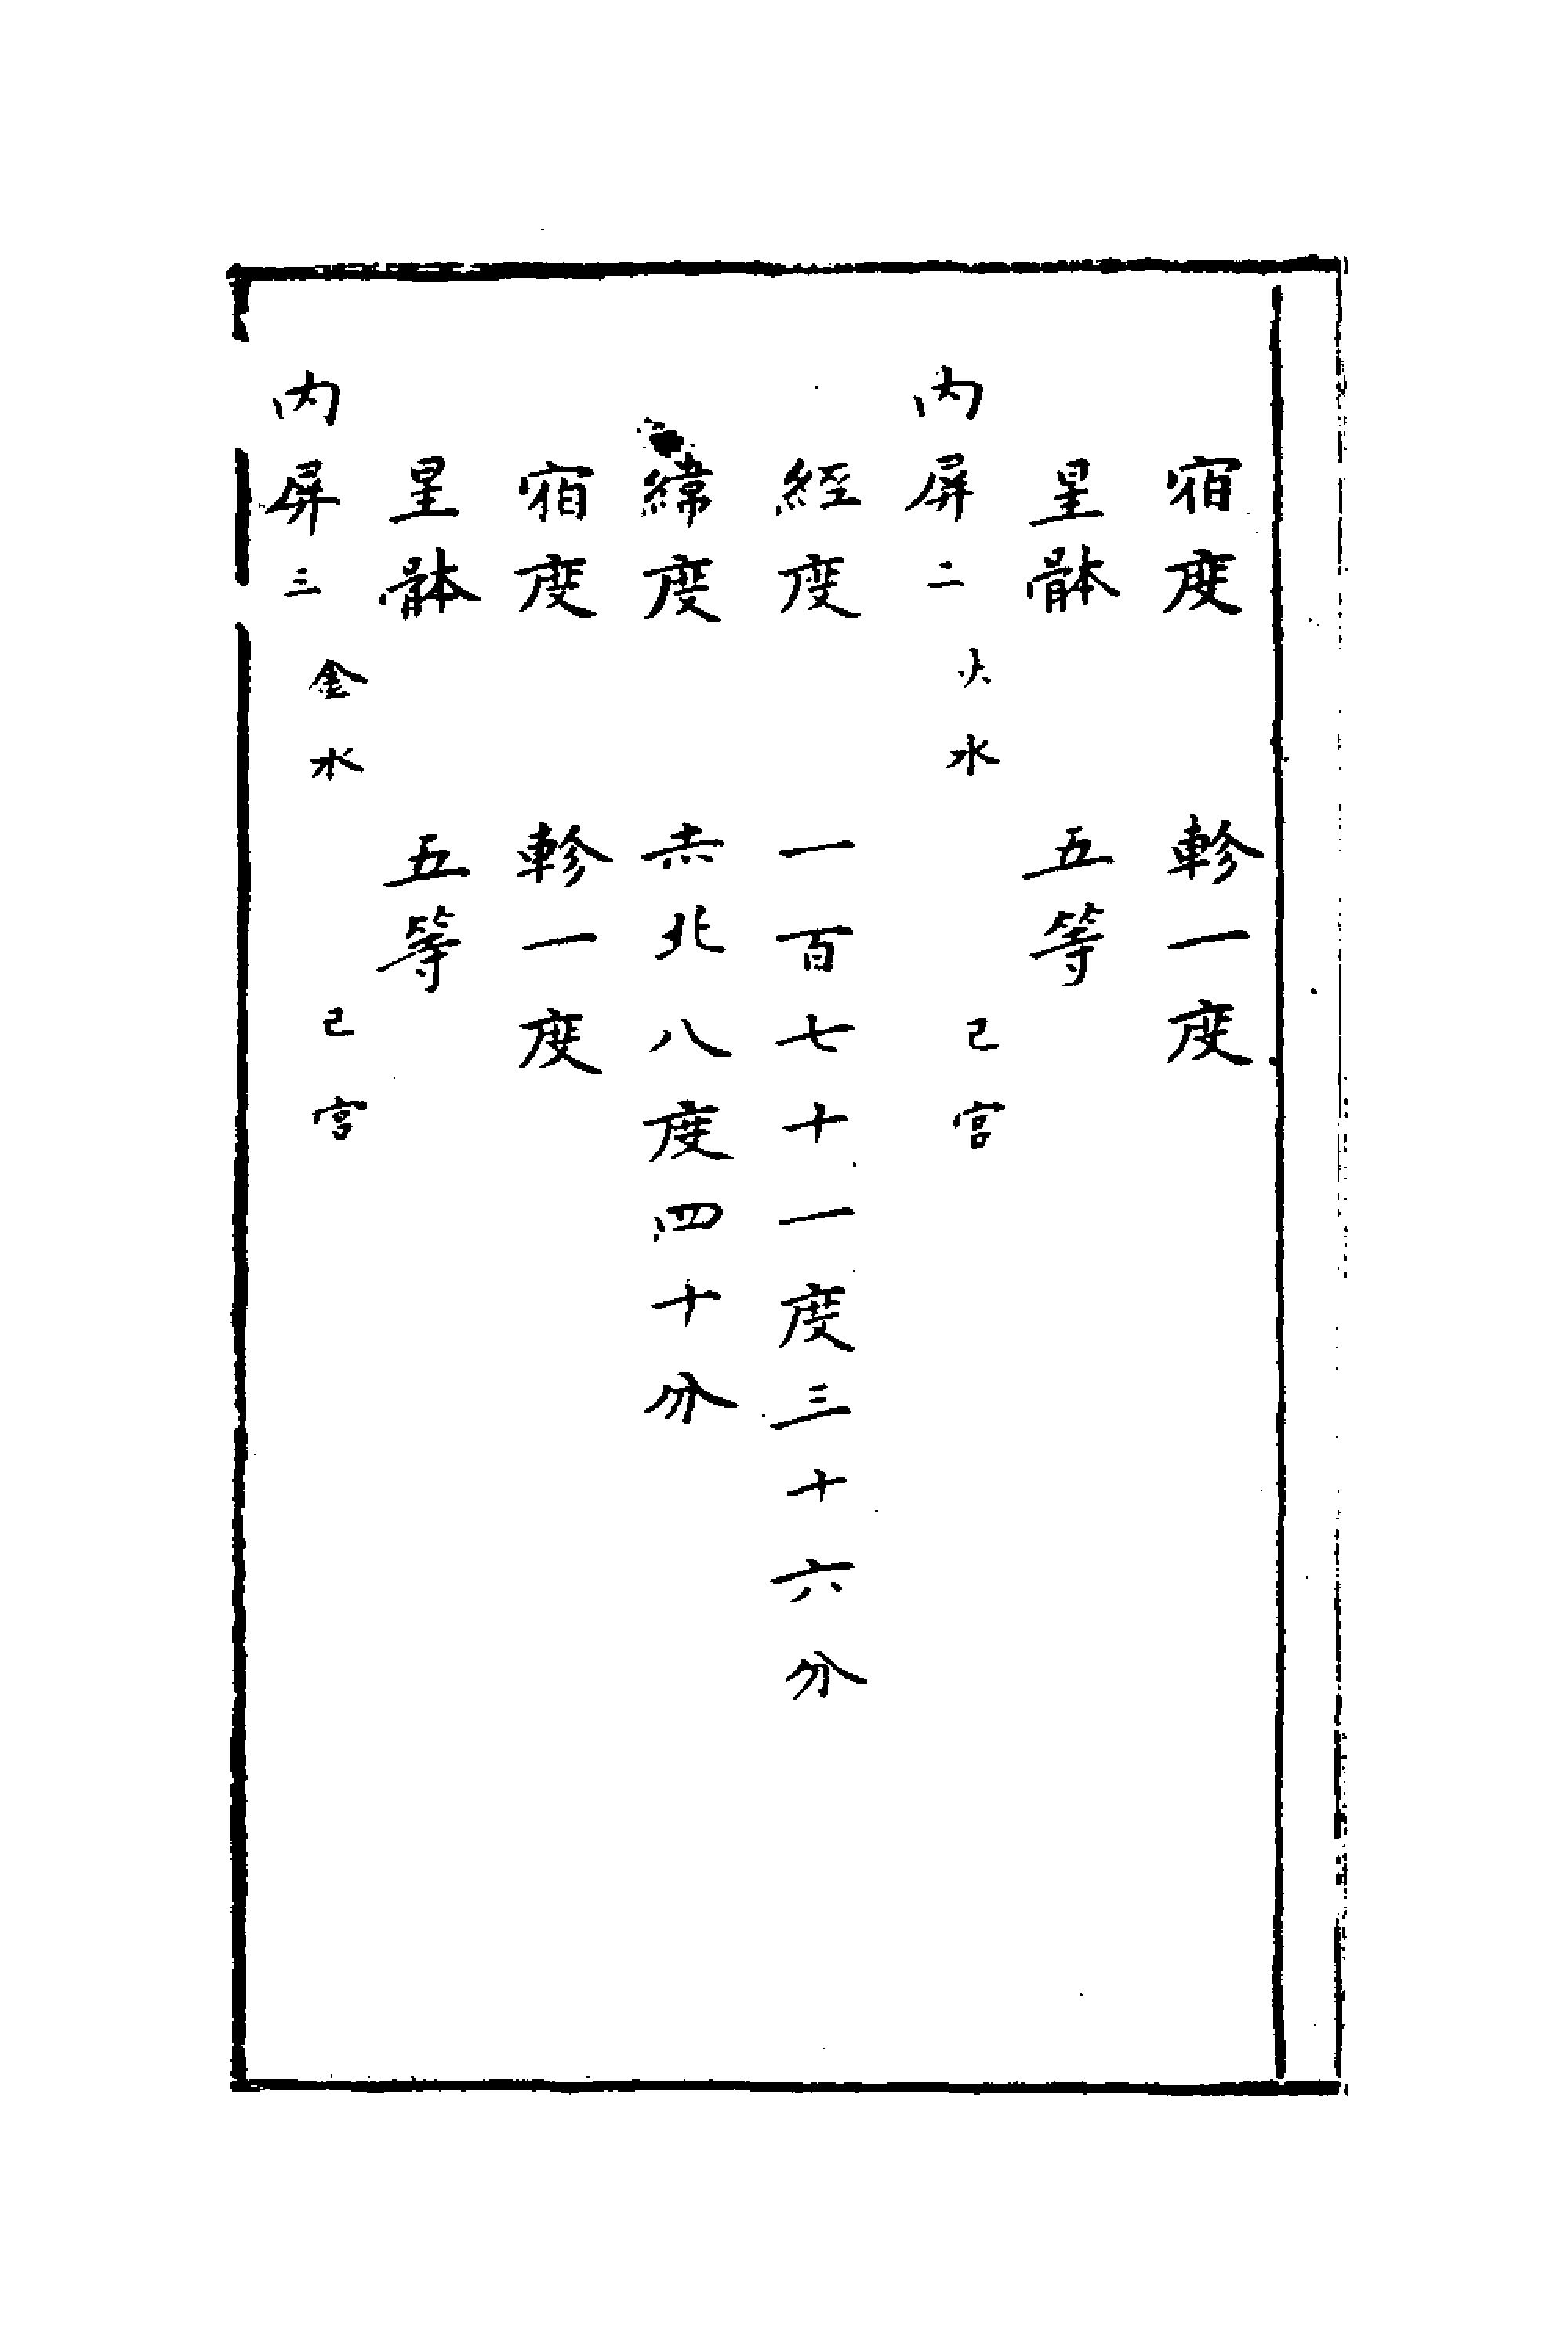 宿度　軫一度
星骵　五等
内屏二　火水　巳宮
經度　一百七十一度三十六分
緯度　赤北八度四十分
宿度　軫一度
星骵　五等
内屏三　金水　巳宮